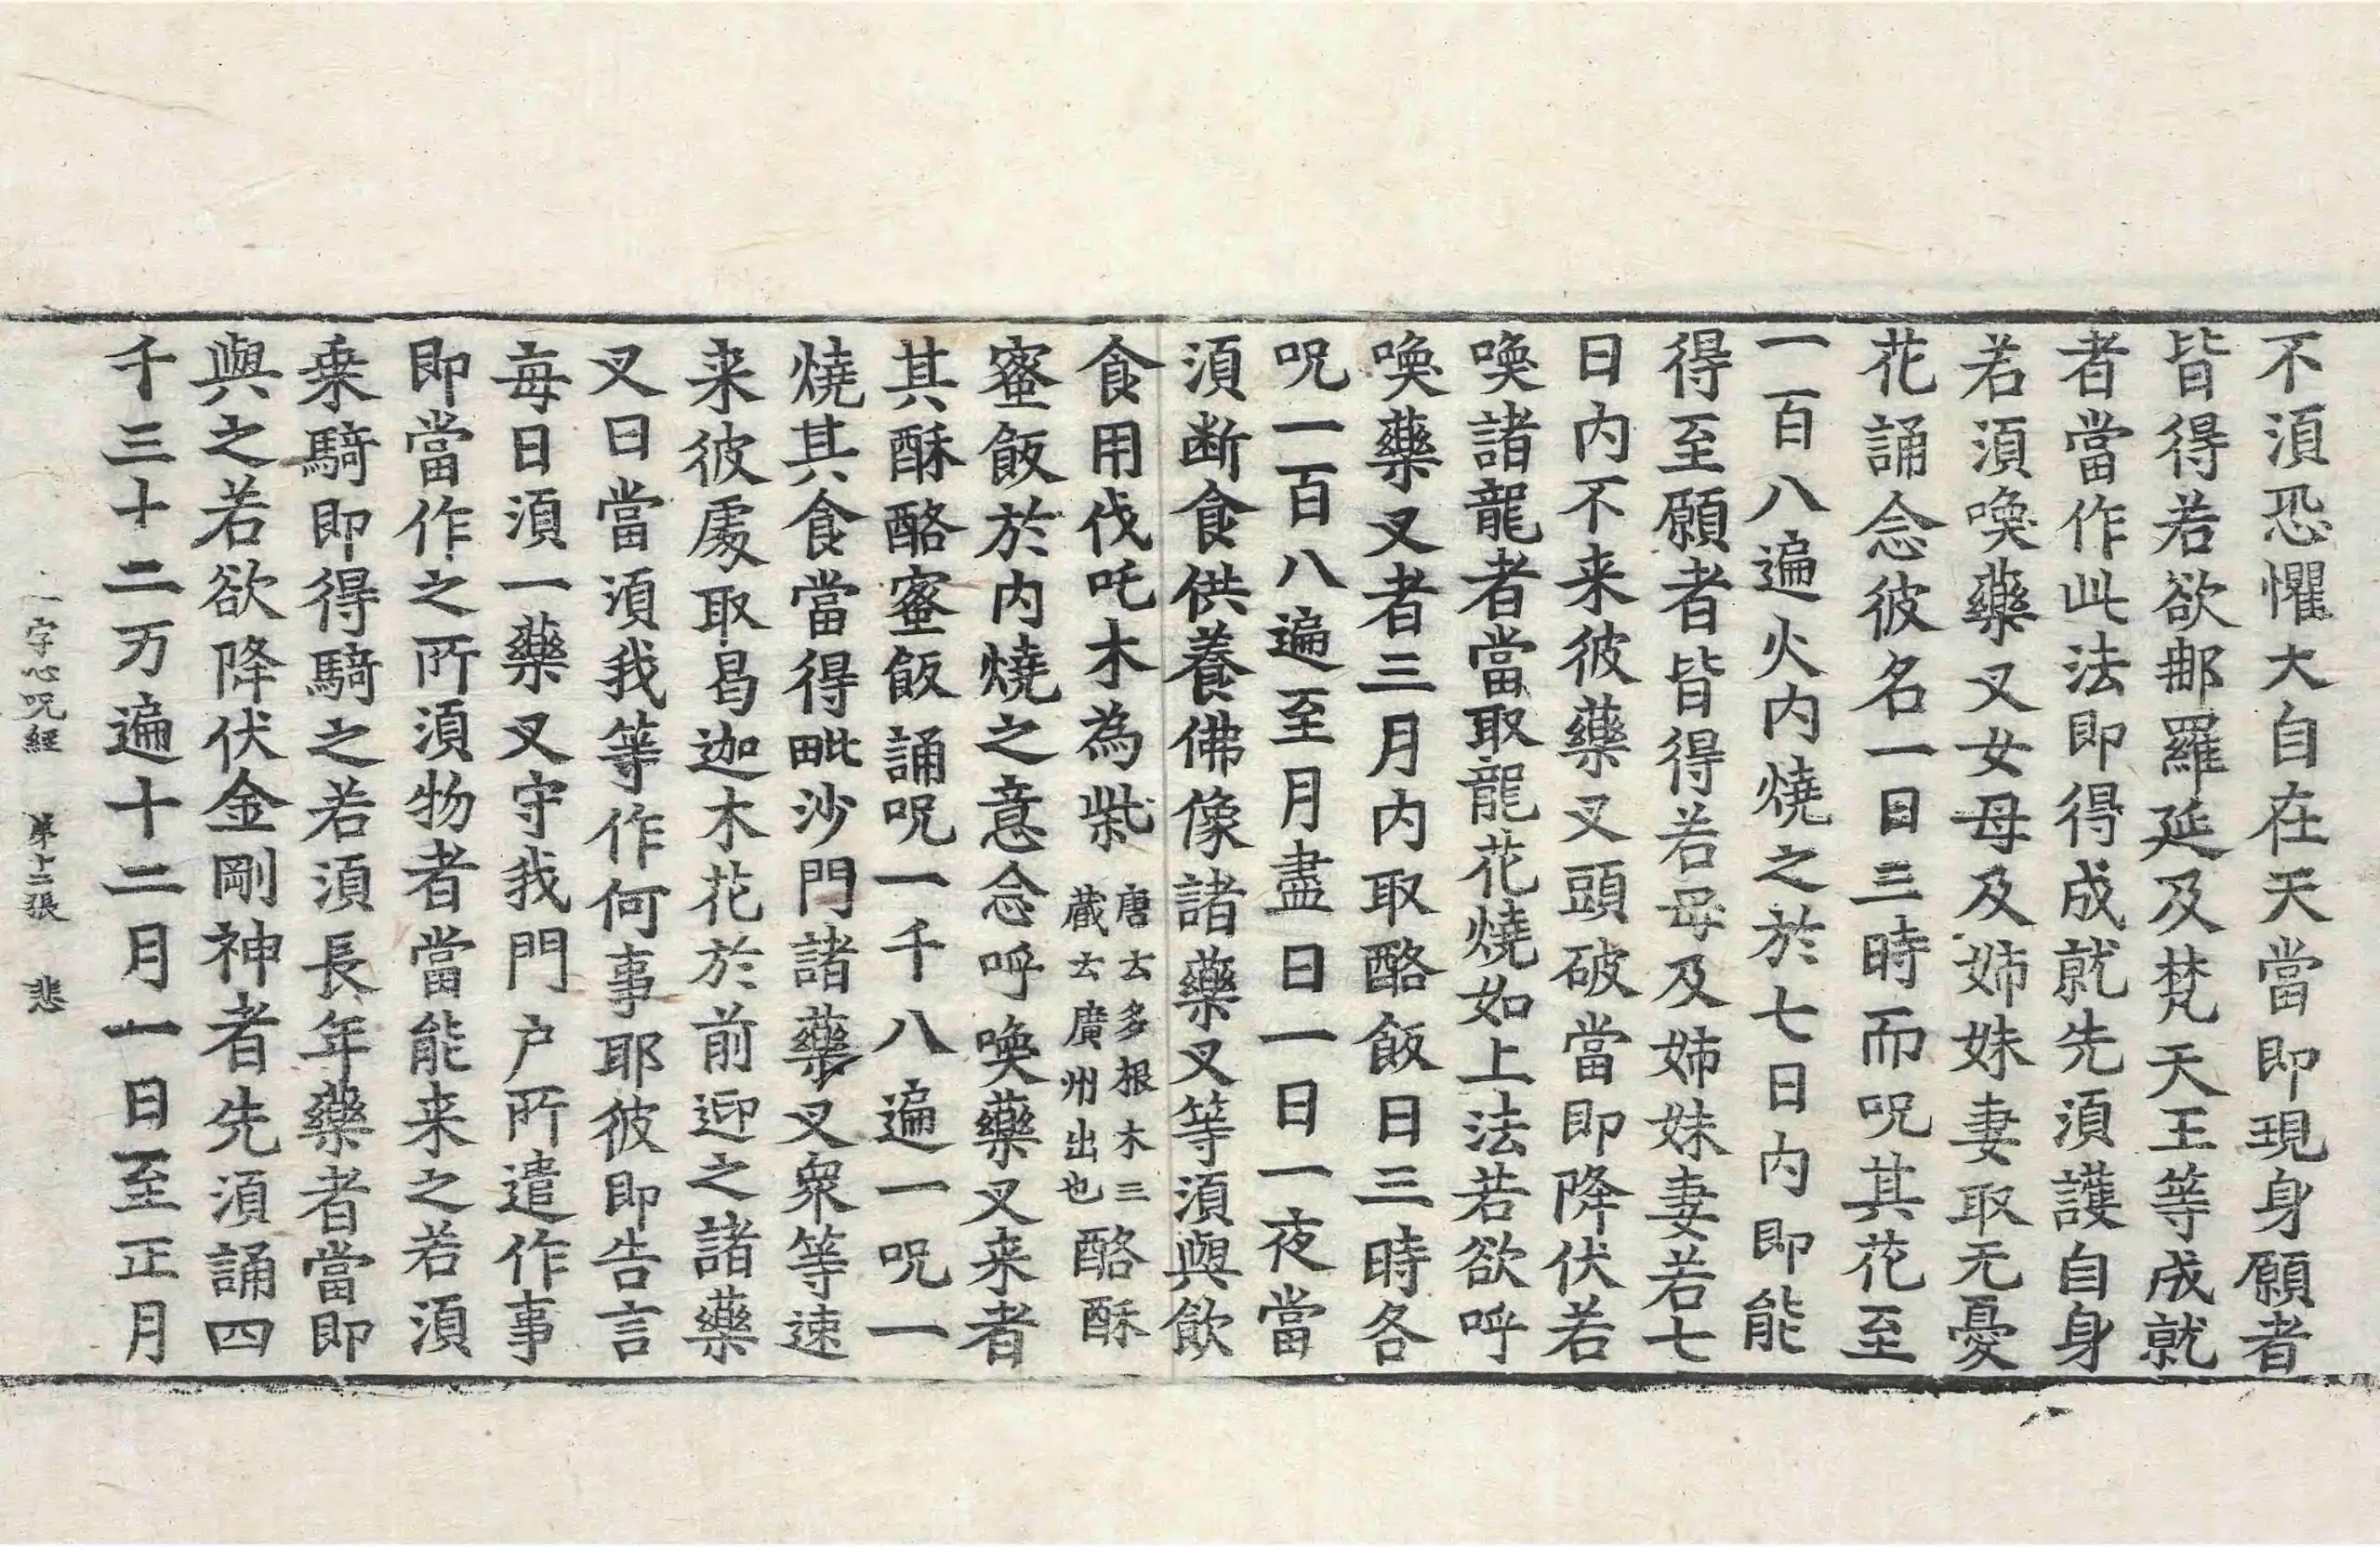 不須恐懼大自在天當即現身願者
皆得若欲那羅延及梵天王等成就
者當作此法即得成就先須護自身
若須喚藥叉女母及姉妹妻取无憂
花誦念彼名一日三時而呪其花至
一百八遍火内燒之於七日内即能
得至願者皆得若母及姉妹妻若七
日内不来彼藥叉頭破當即降伏若
喚諸龍者當取龍花燒如上法若欲呼
喚藥叉者三月内取酪飯日三時各
呪一百八遍至月盡日一日一夜當
須斷食供養佛像諸藥叉等須與飲
食用伐吒木為柴唐云多根木三藏云廣州出也酪酥
蜜飯於内燒之意念呼喚藥叉来者
其酥酪蜜飯誦呪一千八遍一呪一
燒其食當得毗沙門諸藥叉衆等速
来彼處取曷迦木花於前迎之諸藥
叉曰當須我等作何事耶彼即告言
每日須一藥叉守我門户所遣作事
即當作之所須物者當能来之若須
乗騎即得騎之若須長年藥者當即
與之若欲降伏金剛神者先須誦四
千三十二万遍十二月一日至正月
一字心呪經 第十二張 悲